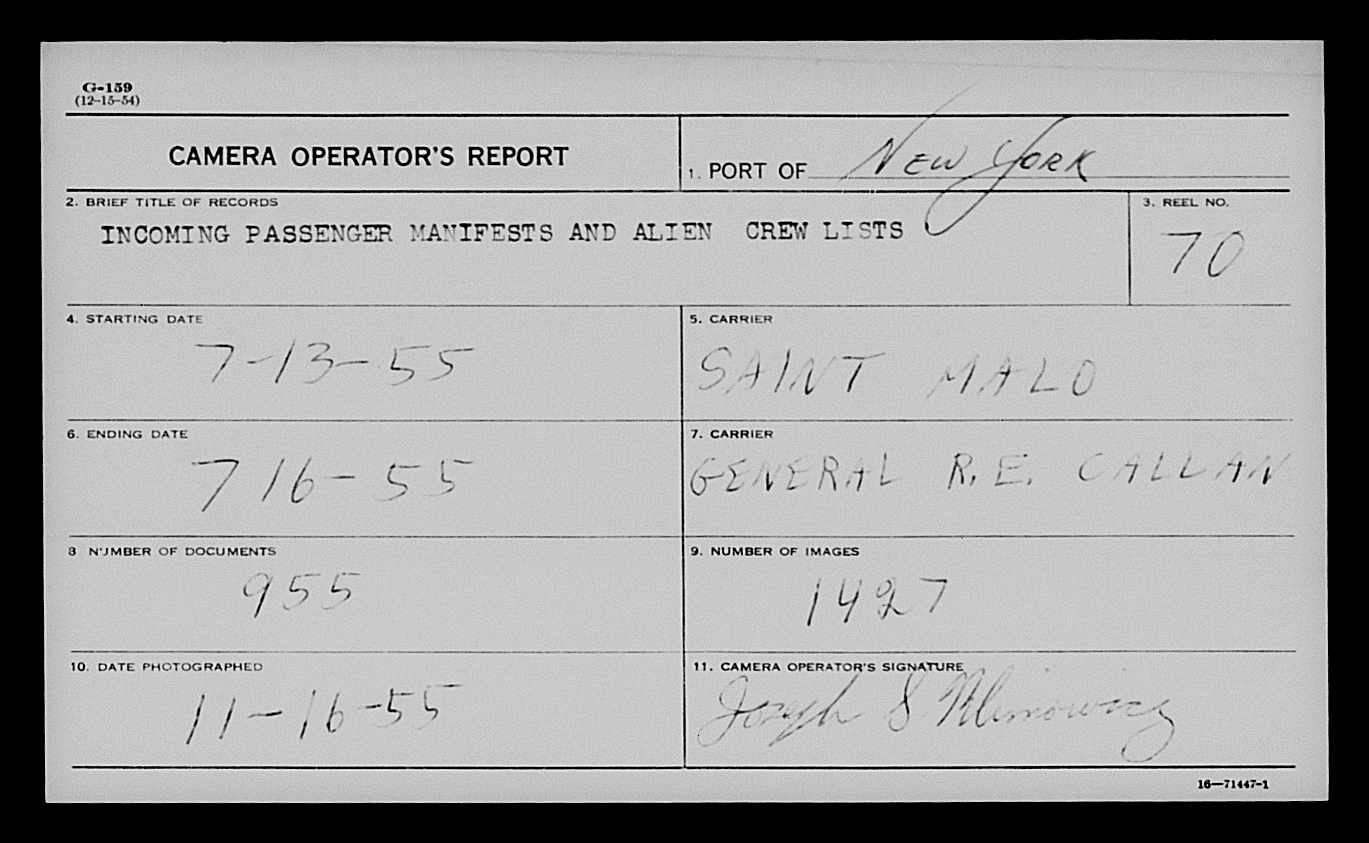 G-159
(12-15-54)
CAMERA OPERATOR'S REPORT
1. PORT OF New York
2. BRIEF TITLE OF RECORDS
INCOMING PASSENGER MANIFESTS AND ALIEN CREW LISTS
3. REEL NO.
70
4. STARTING DATE
7-13-55
5. CARRIER
SAINT MALO
6. ENDING DATE
7 16-55
7. CARRIER
GENERAL R.E. CALLAN
8 NUMBER OF DOCUMENTS
955
9. NUMBER OF IMAGES
1427
10. DATE PHOTOGRAPHED
11-16-55
11. CAMERA OPERATOR'S SIGNATURE
Joseph S.
16—71447-1